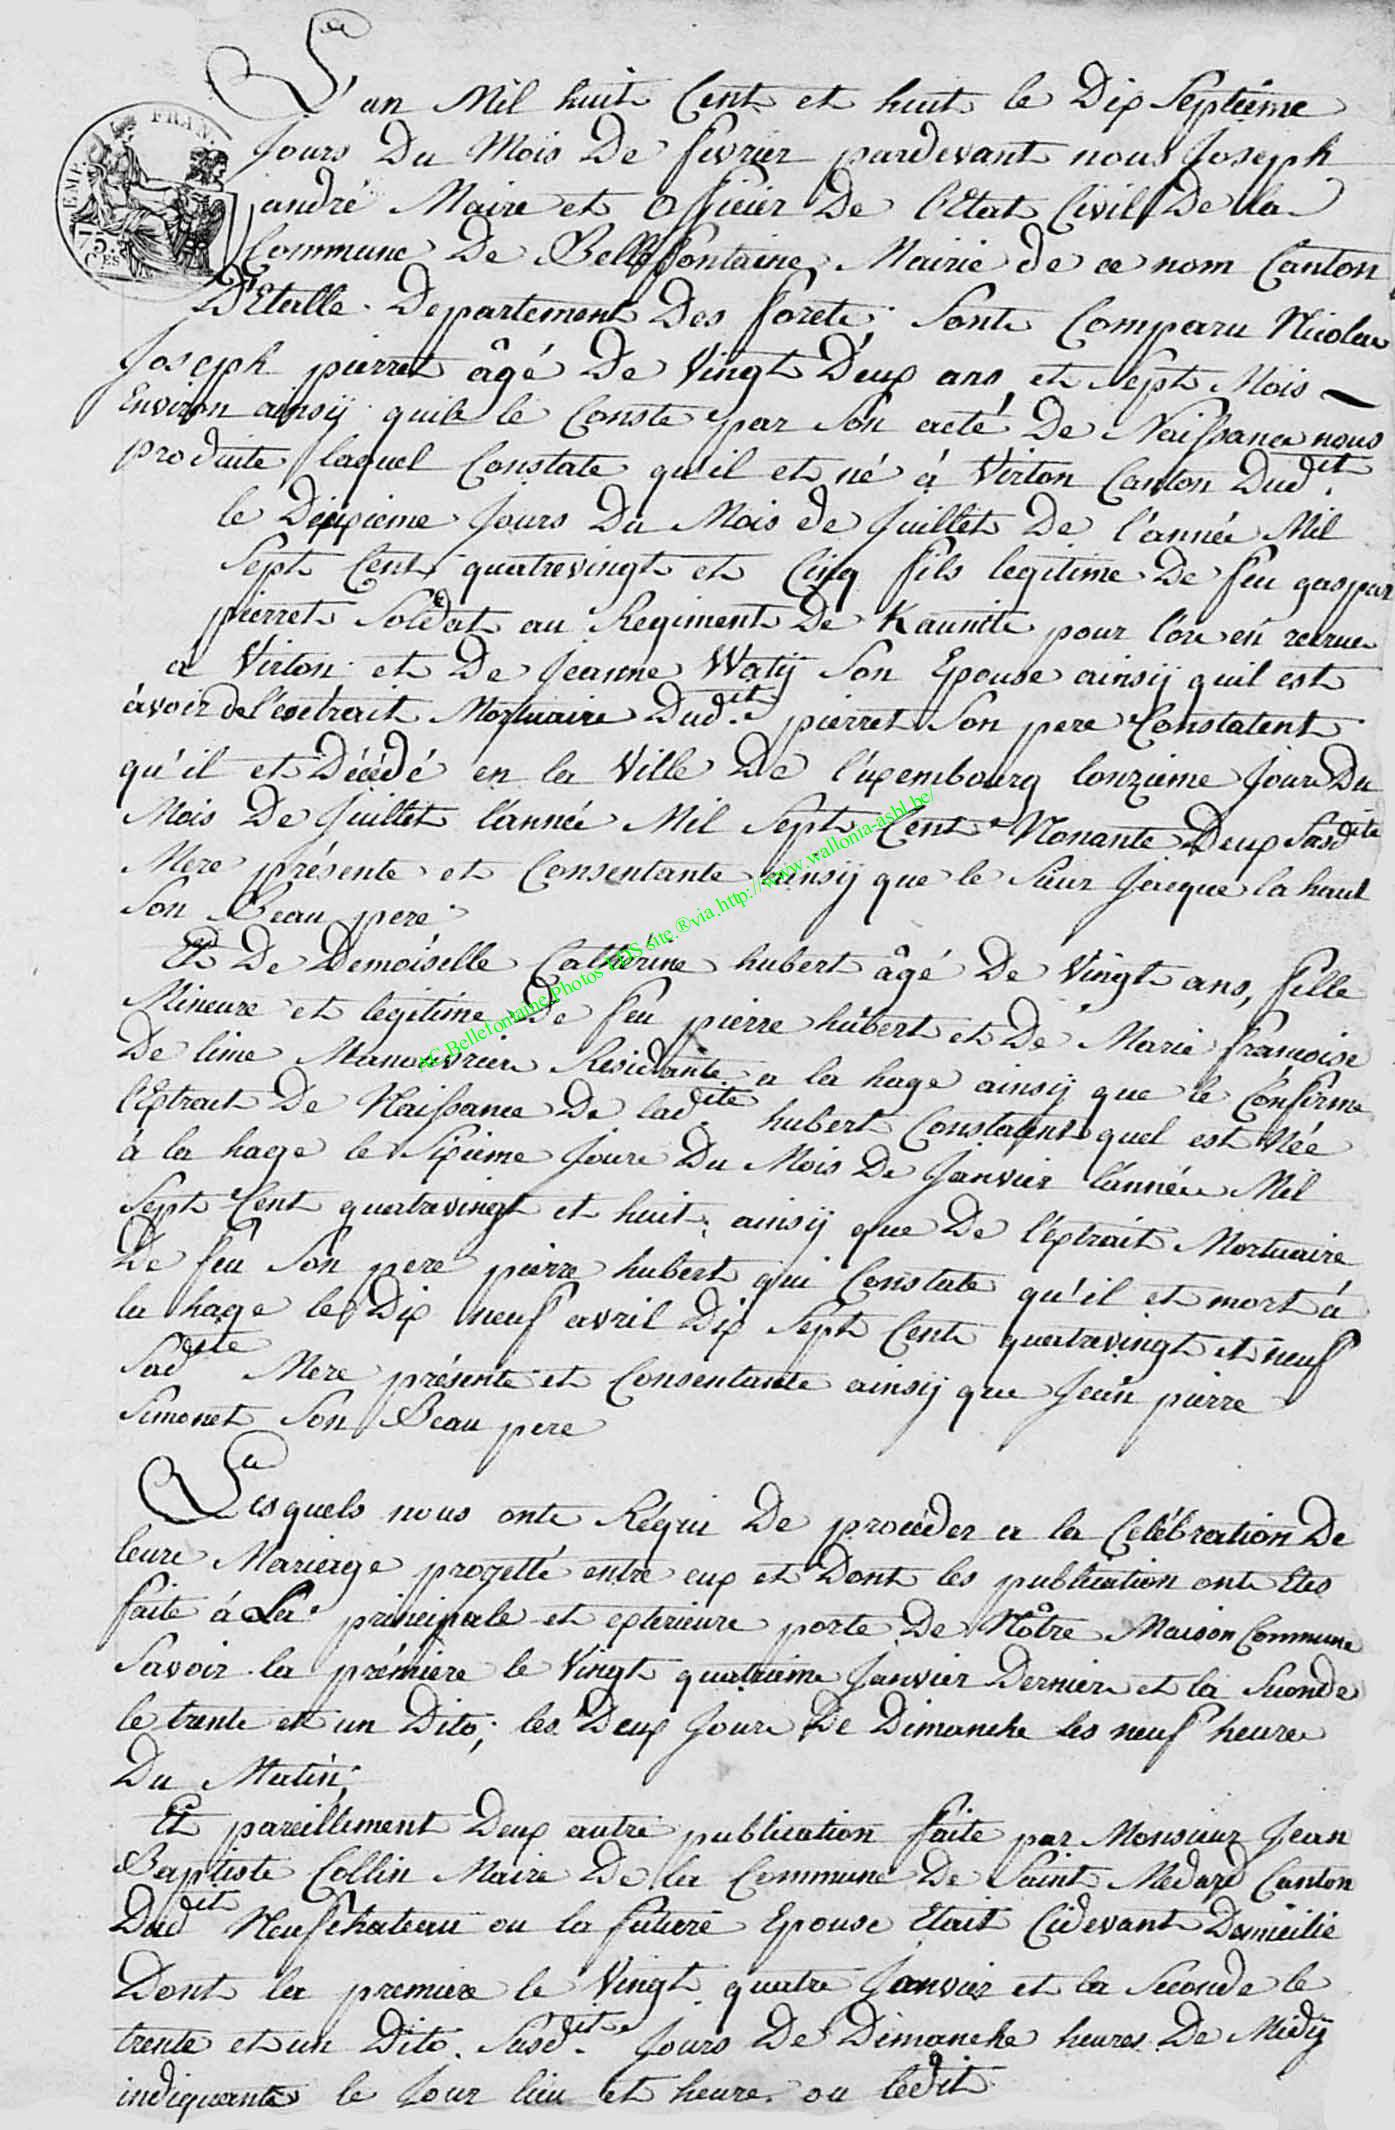 L'an Mil huit Cent et huit le Dix Septieme
Jours Du Mois De fevrier pardevant nous Joseph
andré Maire et Officier De l'Etat Civil De la
Commune De Bellefontaine Mairie de ce nom Canton
D'Etalle Departement Des forets Sont Comparu Nicolas
Joseph pierret âgé De Vingt Deux ans et Sept Mois
Environ ainsÿ quil le Conste par Son acte De Naissance nous
produite laquel Constate qu'il et né à Virton Canton Dudit
le Deuxieme Jours Du Mois de Juillet De l'année Mil
Sept Cent quatrevingt et Cinq fils legitime De feu gaspar
pierret Soldat au Regiment De Kaunitz pour l'ore en recrue
a Virton et De Jeanne Watÿ Son Epouse ainsÿ quil est
àvoir de l'extrait Mortuaire Dudit pierret Son pere Constatent
qu'il et Décédé en la Ville De l'uxembourg lonzieme Jour Du
Mois De Juillet l'année Mil Sept Cent Nonante Deux Sasdite
Mere présente et Consentante ainsÿ que le Sieur Jacque la haut
Son Beau pere
Et De Demoiselle Cathérine hubert âgé De Vingt ans, fille
Mineure et legitime De feu pierre hubert et De Marie françoise
De line Manouvrier Residante a la hage ainsÿ que le Confirme
l'Extrait De Naissance De ladite hubert Constatent quel est Née
à la hage le Sixieme Jour Du Mois De Janvier l'année Mil
Sept Cent quatrevingt et huit, ainsÿ que De l'extrait Mortuaire
De feu Son pere pierre hubert qui Constate qu'il et mort à
la hage le Dix neuf avril Dix Sept Cent quatrevingt et neuf
Sadite Mere présente et Consentante ainsÿ que Jean pierre
Simonet Son Beau pere
Lesquels nous ont Réqui De proceder a la Celébration De
leure Mariage projetté entre eux et Dont les publication ont Etes
faite à La principale et exterieure porte De Nôtre Maison Commune
Savoir la prémiere le Vingt quatrieme Janvier Dernier et la Seconde
le trente et un Dito, les Deux Jour De Dimanche les neuf heure
Du Matin,
Et pareillement Deux autre publication faite par Monsieur Jean
Baptiste Collin Maire De la Commune De Saint Medard Canton
Dudit Neufchateau ou la future Epouse Etait Cidevant Domicilie
Dont la premiere le Vingt quatre Janvier et la Seconde le
trente et un Dito. Susdit. Jours De Dimanche heures De Midÿ
indiquante le Jour lieu et heure ou ledit
EMP. FRAN.
75
C.ES
AC Bellefontaine Photos EDS site ®via http://www.wallonia-asbl.be/